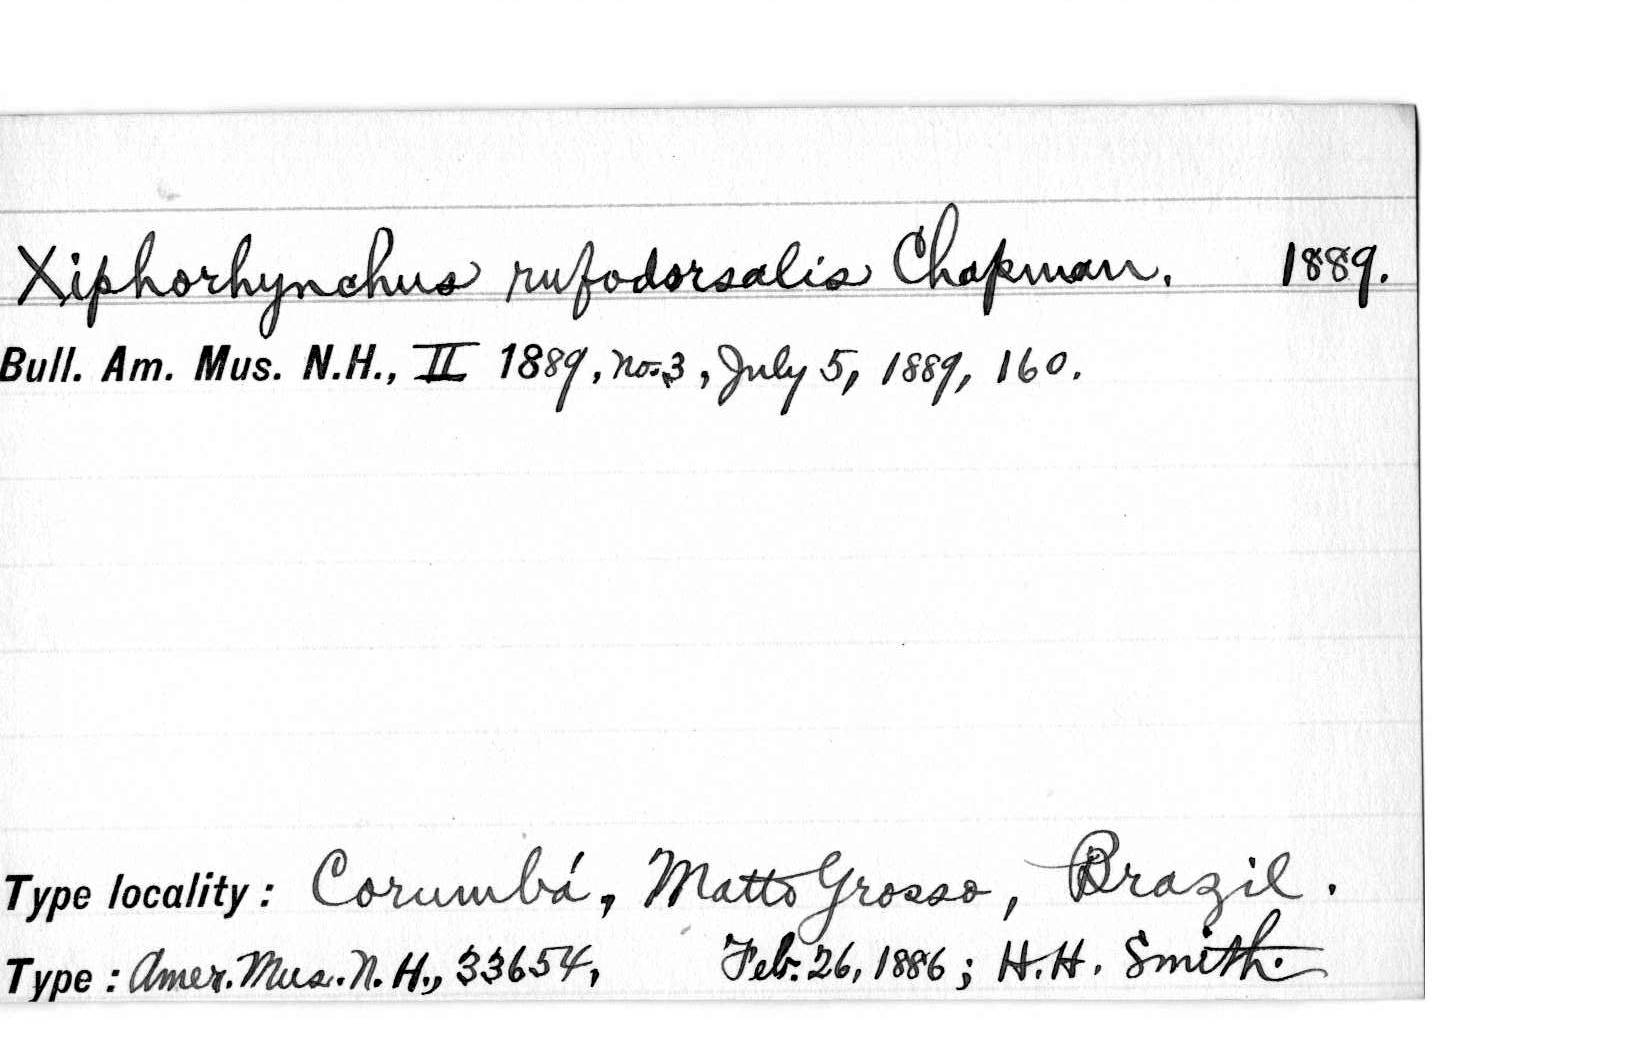 Xiphorhynchus rufodorsalis Chapman. 1889.
Bull. Am. Mus. N.H., II 1889, no. 3, July 5, 1889, 160.
Type locality: Corumbá, Matto Grosso, Brazil.
Type: Amer. Mus. N. H., 33654, Feb. 26, 1886; H. H. Smith.